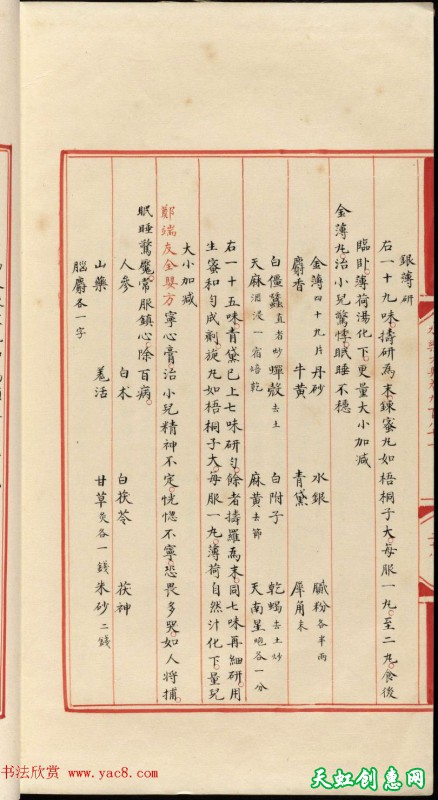 銀薄研
右一十九味擣研為末鍊蜜丸如梧桐子大每服一丸至二丸食後
臨臥薄荷湯化下更量大小加減
金薄丸治小兒驚悸眠睡不穩
金薄四十九片 丹砂 水銀 膩粉各半兩
麝香 牛黃 青黛 犀角末
白僵蠶直者炒 蟬殼去土 白附子 乾蝎去土炒
天麻酒浸一宿焙乾 麻黃去節 天南星炮各一分
右一十五味青黛已上七味研勻餘者擣羅為末同七味再細研用
生蜜和成劑旋丸如梧桐子大每服一丸薄荷自然汁化下量兒
大小加減
鄭端友全嬰方寧心膏治小兒精神不定恍惚不寧恐畏多哭如人將捕
眠睡驚魘常服鎮心除百病
人參 白朮 白茯苓 茯神
山藥 羌活 甘草炙各一錢 朱砂二錢
腦麝各一字
书法欣赏 www.yac8.com
天虹创惠网